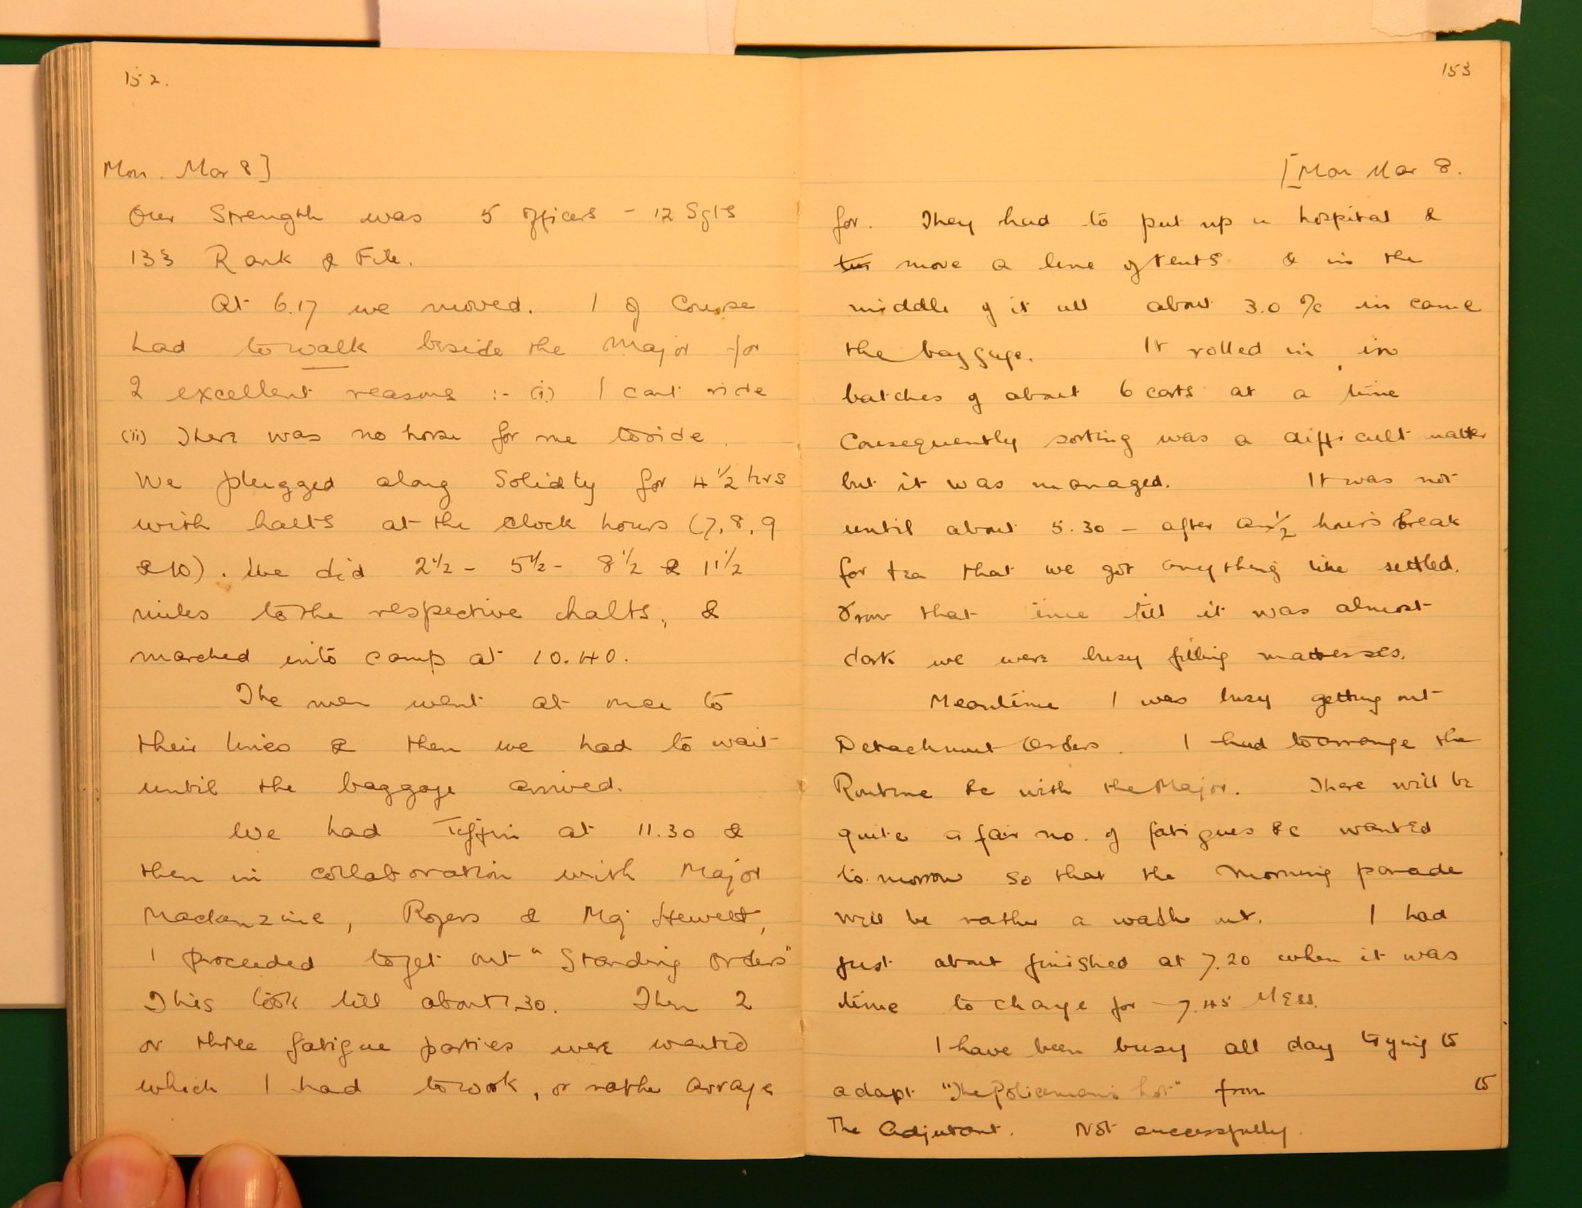 152.
Mon. Mar 8]
Our Strength was 5 officers - 12 Sgts
133 Rank & File.
At 6.17 we moved. I of course
had to walk beside the Major for
2 excellent reasons :- (i) I cant ride
(ii) There was no horse for me to ride.
We plugged along solidly for 4 1/2 hrs
with halts at the clock hours (7, 8, 9
& 10). We did 2 1/2 - 5 1/2 - 8 1/2 & 11 1/2
miles to the respective halts, &
marched into camp at 10.40.
The men went at once to
their lines & then we had to wait
until the baggage arrived.
We had Tiffin at 11.30 &
then in collaboration with Major
Mackenzie, Rogers & Hewett,
I proceeded to get out "Standing Orders"
This took till about 1.30. Then 2
or three fatigue parties were wanted
which I had to work, or rather arrange
153
[Mon Mar 8.
for. They had to put up a hospital &
move a line of tents & in the
middle of it all about 3.0 in came
the baggage. It rolled in, in
batches of about 6 carts at a time
Consequently sorting was a difficult matter
but it was managed. It was not
until about 5.30 - after an 1/2 hour's break
for tea that we got anything like settled.
From that time till it was almost
dark we were busy filling mattresses.
Meantime I was busy getting out
Detachment Orders. I had to arrange the
Routine &c with the Major. There will be
quite a fair no. of fatigues &c wanted
to-morrow so that the morning parade
will be rather a wash out. I had
just about finished at 7.20 when it was
time to change for 7.45 Mess.
I have been busy all day trying to
adapt "The Policeman's lot" from to
The Adjutant. Not successfully.